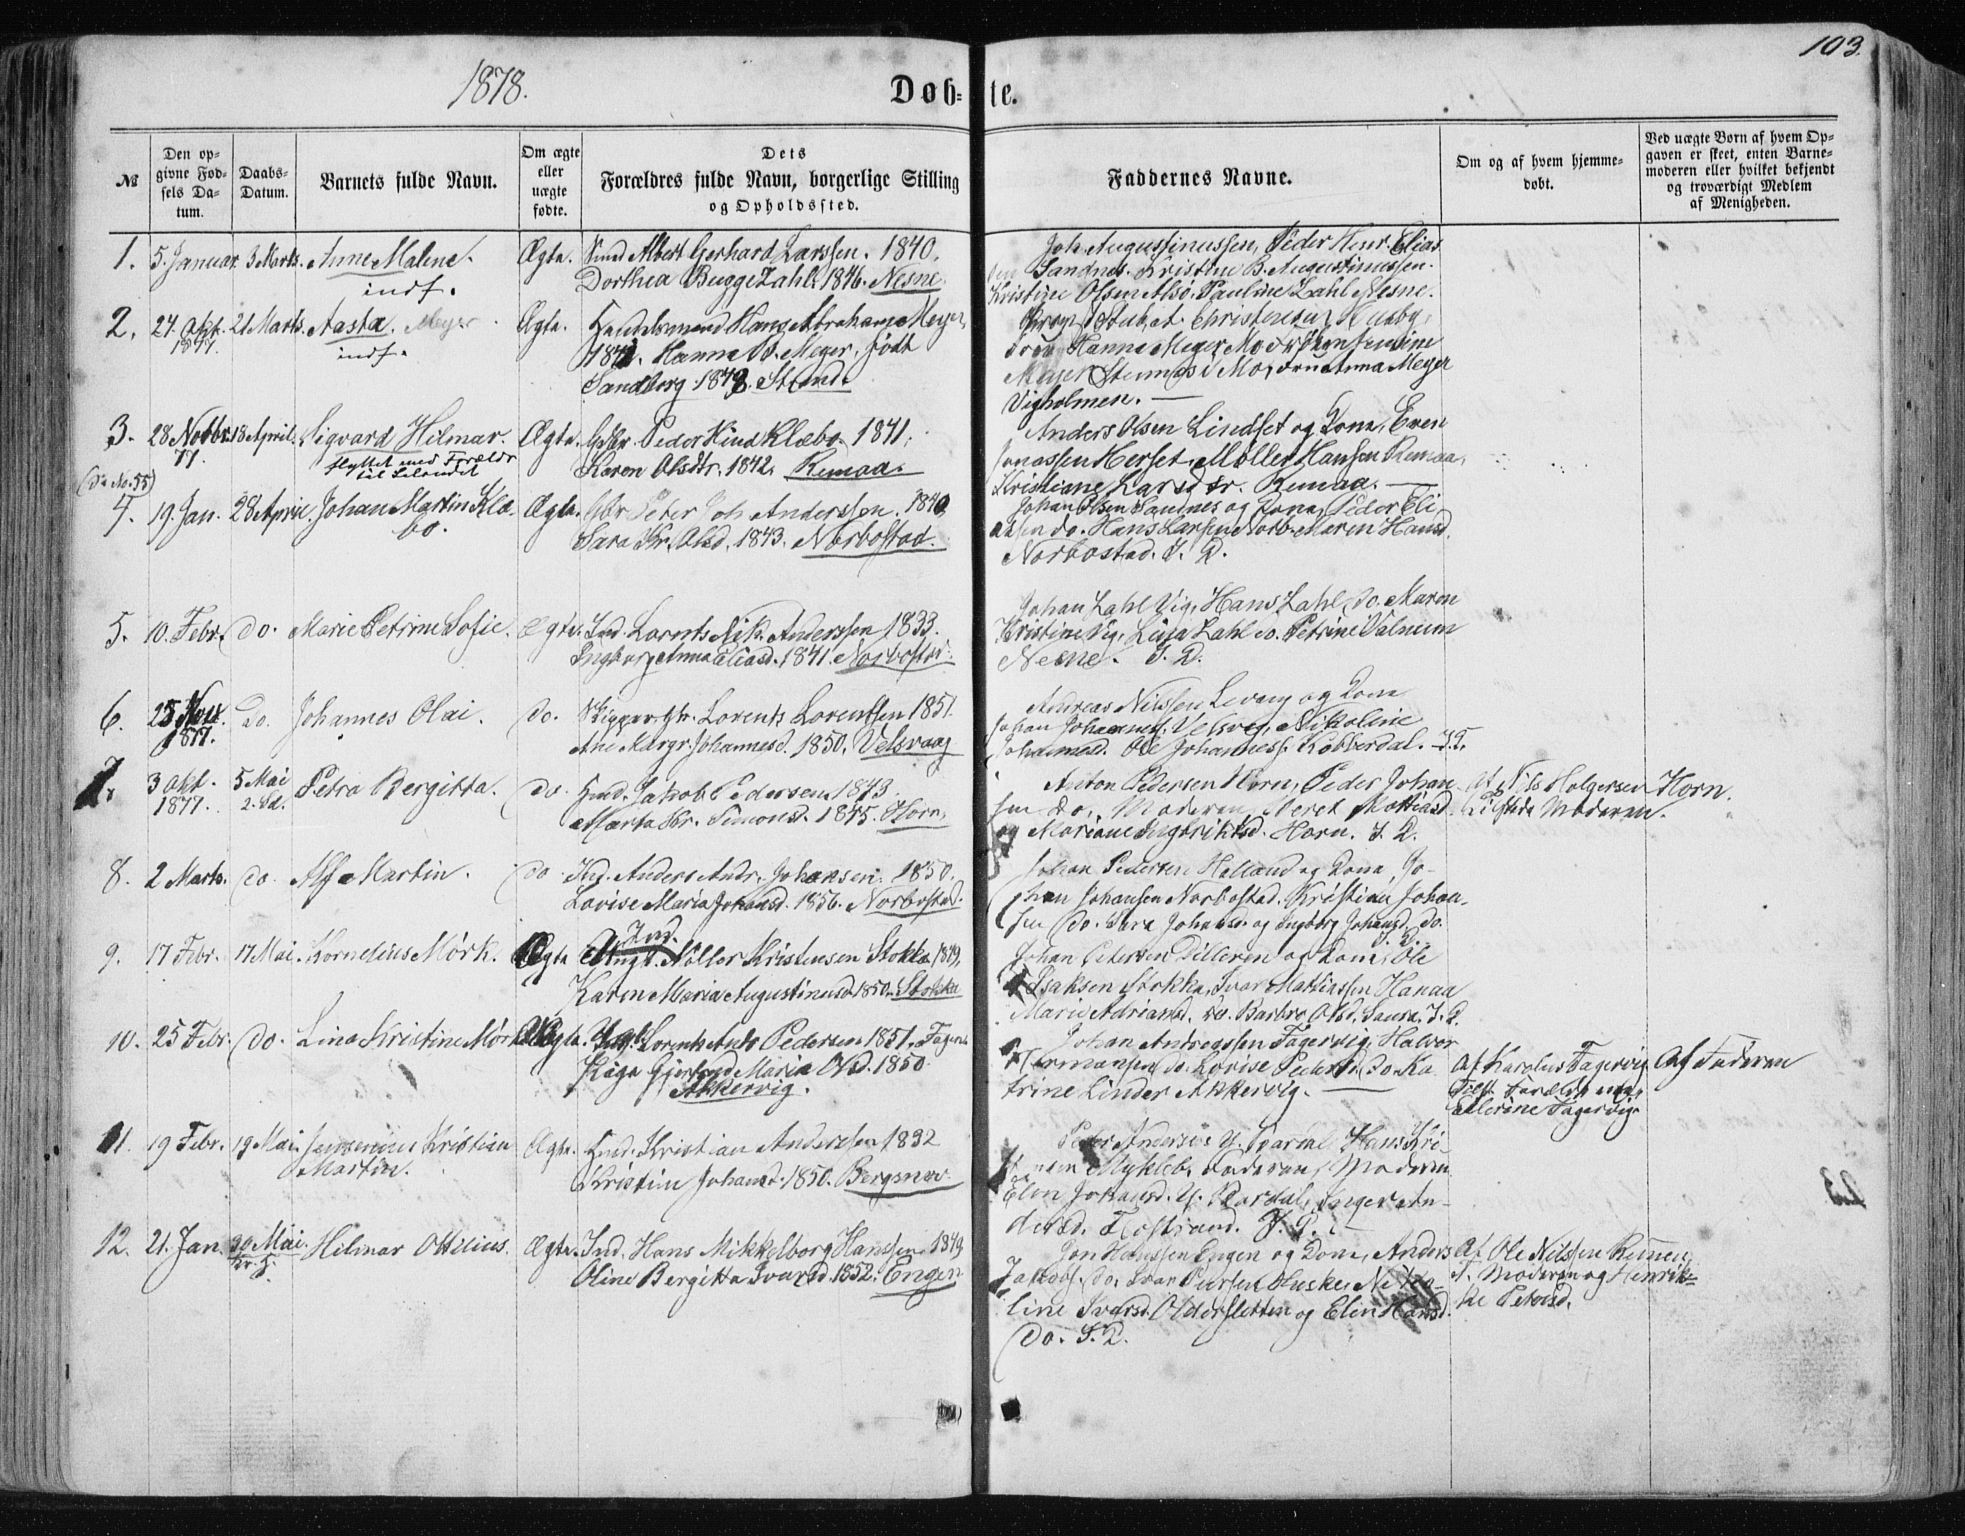 103.
1878.
Døb-te.
№
Den op-
givne Fød-
sels Da-
tum.
Daabs-
Datum.
Barnets fulde Navn.
Om ægte
eller
uægte
fødte.
Dets
Forældres fulde Navn, borgerlige Stilling
og Opholdssted.
Faddernes Navne.
Om og af hvem hjemme-
døbt.
Ved uægte Børn af hvem Op-
gaven er skeet, enten Barne-
moderen eller hvilket bekjendt
og troværdigt Medlem
af Menigheden.
1. 5. Januar. 3 Marts. Anne Malene. Ægte. Albert Gerhard Larssen. 1840.
indf. Dorthea Bugge Zahl. 1846. Nesne.
Joh. Augustinussen, Peder Henr. Elias
Sandnes. Kristine B. Augustinussen.
Kristine Olsen Alsø. Pauline Zahl Nesne.
2. 27. Okt. 21 Marts. Aasta. Meyer. Ægte. Handelsmand Hans Abraham Meyer,
1877. indf. Hanna B. Meyer, født
Sandborg 1848. Strand.
Christensen Husby,
Hanna Meyer Mo
Meyer Stennes i Mo, Anna Meyer
Vigholmen. —
3. 28 Novbr. 18 April. Sigvard Hilmar. Ægte. Gbr. Peder Hind Klæbo. 1841.
77. flyttet med Forældr
Karen Olsdtr. 1842. Remaa.
Anders Olsen Lindset og Kona, Even
Jonassen Herset, Møller Hansen Remaa,
Kristiane Larsdtr. Remaa. —
(Da No. 55)
4. 19. Jan. 28 April. Johan Martin Klæ- Ægte. Gbr. Peter Joh. Anderssen. 1840
bo. Sara Kr. Olsd. 1843. Norbostad.
Johan Olsen Saudnes og Kona, Peder Eli
do. Hans Larsen Norb. Maren Hansd.
Norbostad. I. D.
5. 10. Febr. do. Marie Petrine Sofie. Ægte. Ind. Lornts Nik. Anderssen 1833.
Ingborg Anna Eliasd. 1841. Norbostad.
Johan Zahl Vig, Hans Zahl do. Maren
Kristine Vig, Lina Zahl do. Petrine Valnum
Nesne. I. D.
6. 25 Nov. Do. Johannes Olai. do. Skipper Lorents Lorentsen 1851.
1877. Ane Margr. Johannesd. 1850. Velsvaag
Andreas Nilssen Levang og Kona
Johan Johanness. Velsvag, Nikoline
Johannesd. Ole Johanness. Kobberdal. I. D.
7. 3 Okt. 5 Mai Petra Bergitta. do. Hmd. Jakob Pedersen 1843.
1877. Marta Kr. Simonsd. 1845. Horn.
Anton Pedersen Horn, Peder Johan-
sen do, Moderen, Beret Mattiasd.
og Mariane Ingbriktsd. Horn. I. D.
af Nils Holgersen Horn.
Moderen.
8. 2 Marts. do. Alf Martin. do. Ind. Anders Andr. Johansen. 1850.
Lovise Maria Johansd. 1856. Norbostad.
Johan Pedersen Helland og Kona, Jo-
han Johansen Norbostad. Kristian Johan-
sen do. Sara Johansd. og Ingborg Johansd. do.
I. D.
9. 17 Febr. 17 Mai. Kornelius Mørk. Ægte Ind. Møller Kristensen Stokka 1849,
Karen Maria Augustinusd. 1850. Stokka
Johan Petersen Dilleren og Kona, Ole
Isaksen Stokka, Ivar Mattiassen Hanaa
Marie Adriansd. do. Barbro Olsd. I. D.
10. 25 Febr. do. Lina Kristine Mørk Ægte. Lorents Ants Pedersen 1851. Fagervig
Pige Gjertrud Maria Olsd. 1850
Akkervig.
Johan Andreassen Fagervig, Halvor
Hermansen do. Lovise Pedersd. do Ka
trine Linder Akkervig. —
Af Karolus Fagervig Af Faderen
Fagervig.
11. 19 Febr. 19 Mai. Jensenius Kristian Ægte. Hmd. Kristian Anderssen 1832
Martin. Kristine Johansd. 1850. Bergsmo.
Peter Anderssen Hans Kri
Mykleb. Faderen, Moderen
Elen Johansd. Inger An-
dersd. I. D.
12. 21. Jan. 30 Mai. Hilmar Ottilius. Ægte. Ind. Hans Mikkelborg Hanssen 1849
Oline Bergitta Ivarsd. 1852. Engen
Jon Hanssen Engen og Kona, Anders
Jakobs. do. Ivar Huske, Niko-
line Ivarsd. Oldersletten og Elen Hansd.
do. I. D.
Af Ole Nilssen
Moderen og Henrik-
ke Petersd.